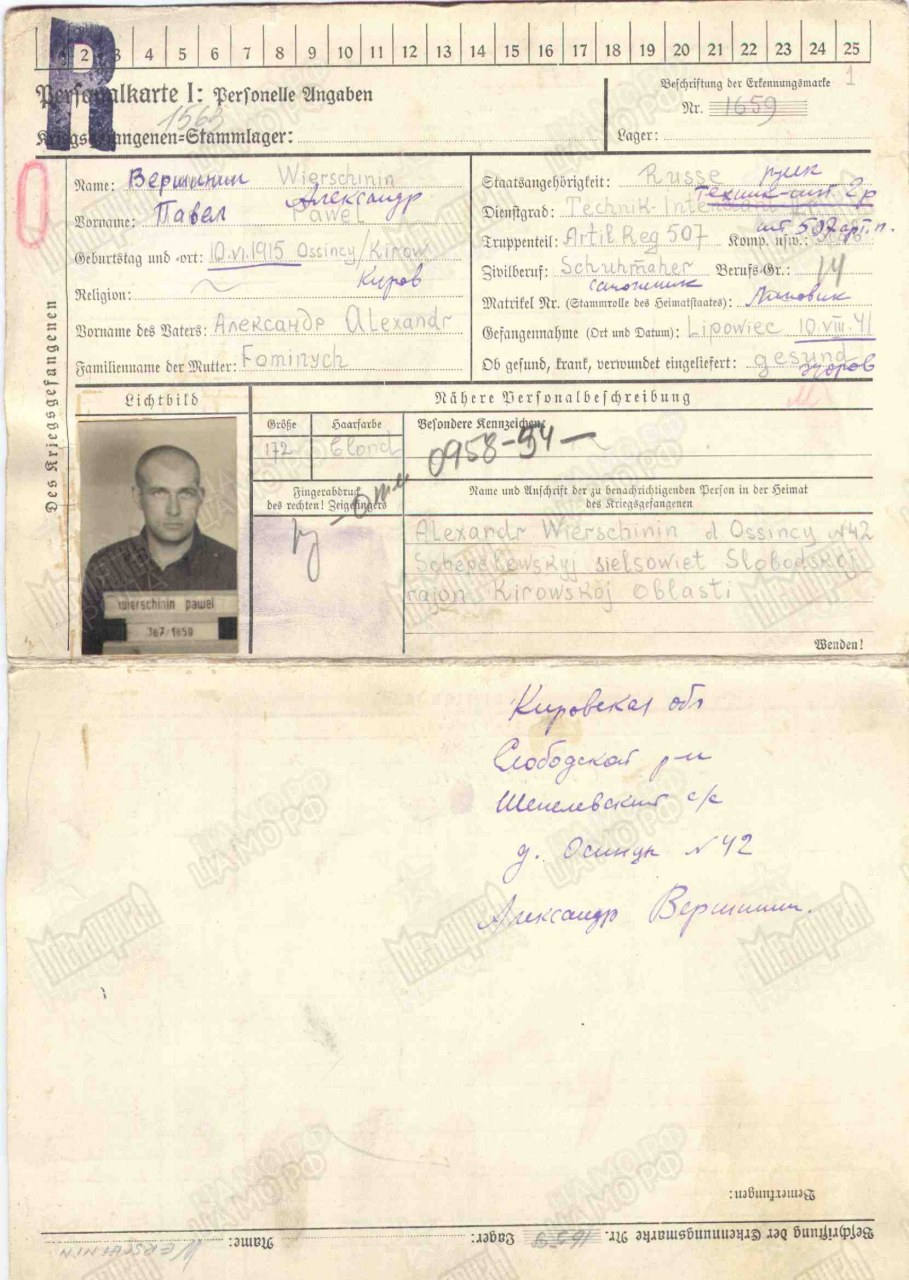 R
1 2 3 4 5 6 7 8 9 10 11 12 13 14 15 16 17 18 19 20 21 22 23 24 25
Personalkarte I: Personelle Angaben
1563
Kriegsgefangenen-Stammlager:
Beschriftung der Erkennungsmarke 1
Nr. 1659
Lager:
Des Kriegsgefangenen
Name: Вершинин Wierschinin
Александр
Vorname: Павел Pawel
Geburtstag und -ort: 10.VI.1915 Ossincy/Kirow
Киров
Religion:
Vorname des Vaters: Александр Alexandr
Familienname der Mutter: Fominych
Staatsangehörigkeit: Russe
техник-инт. 2р
Dienstgrad: Technik-
Truppenteil: Artil Reg 507 Komp. usw.:
507 арт. п.
Zivilberuf: Schuhmaher Berufs-Gr.: 14
сапожник
Matrikel Nr. (Stammrolle des Heimatstaates):
Gefangennahme (Ort und Datum): Lipowiec 10.VIII.41
Ob gesund, krank, verwundet eingeliefert: gesund
здоров
Lichtbild
wierschinin pawel
367/1659
Nähere Personalbeschreibung
Größe Haarfarbe Besondere Kennzeichen:
172 blond
0958-54
Fingerabdruck
des rechten! Zeigefingers
Name und Anschrift der zu benachrichtigenden Person in der Heimat
des Kriegsgefangenen
Alexandr Wierschinin d Ossincy N42
Schepelewskyj sielsowiet Slobodskoj
rajon Kirowskoj Oblasti
Wenden!
Кировская обл
Слободской р-н
Шепелевский с/с
д. Осинцы N 42
Александр Вершинин.
Bemerkungen:
Beschriftung der Erkennungsmarke Nr. 1659 Lager: Name: WERSCHININ
ЦАМО РФ
Мемориал